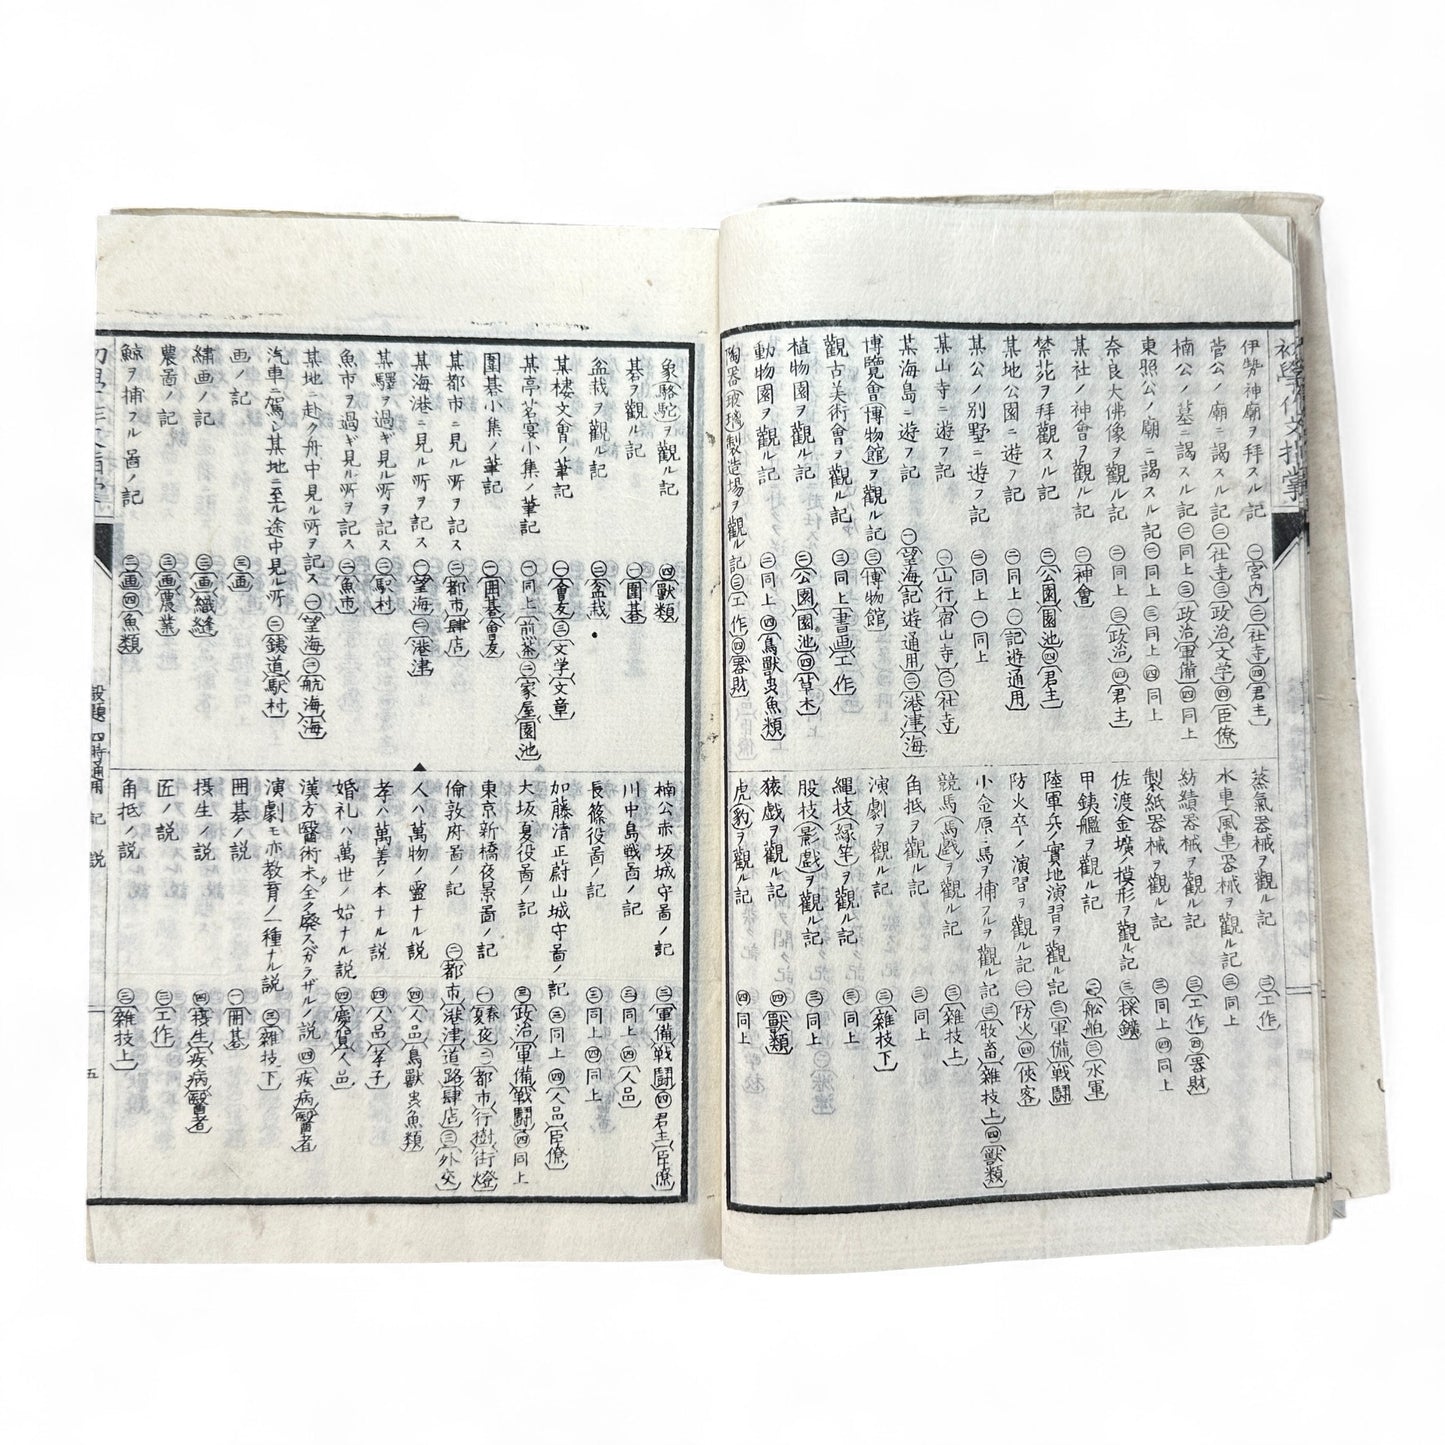 伊勢神廟ヲ拝スル記 ㊀宮内㊁社寺㊃君主
菅公ノ廟ニ謁スル記㊁社寺㊂政治文学㊃臣僚
楠公ノ墓ニ謁スル記㊁同上㊂政治軍備㊃同上
東照公ノ廟ニ謁スル記㊁同上㊂同上㊃同上
奈良大佛像ヲ觀ル記 ㊁同上㊂政治㊃君主
某社ノ神會ヲ觀ル記 ㊁神會
禁苑ヲ拜觀スル記 ㊁公園園池㊃君主
某地公園ニ遊フ記 ㊁同上㊀記遊通用
某公ノ別墅ニ遊フ記 ㊁同上㊀同上
某山寺ニ遊フ記 ㊀山行宿山寺㊁社寺
某海島ニ遊フ記 ㊀望海記遊通用㊁港津海
博覽會博物館ヲ觀ル記㊂博物館
觀古美術會ヲ觀ル記 ㊂同上書画工作
植物園ヲ觀ル記 ㊁公園園池㊃草木
動物園ヲ觀ル記 ㊁同上㊃鳥獸虫魚類
陶器玻璃製造場ヲ觀ル記㊂工作㊃器財
蒸氣器械ヲ觀ル記 ㊂工作
水車風車器械ヲ觀ル記㊂同上
紡績器械ヲ觀ル記 ㊂工作㊃器財
製紙器械ヲ觀ル記 ㊂同上㊃同上
佐渡金壙ノ模形ヲ觀ル記 ㊂採鑛
甲鉄艦ヲ觀ル記 ㊁船舶㊂水軍
陸軍兵ノ實地演習ヲ觀ル記㊂軍備戦闘
防火卒ノ演習ヲ觀ル記㊀防火㊃俠客
小金原ニ馬ヲ捕フルヲ觀ル記㊂牧畜雜技上㊃獸類
競馬馬戯ヲ觀ル記 ㊂雜技上
角抵ヲ觀ル記 ㊂同上
演劇ヲ觀ル記 ㊂雜技下
縄技縁竿ヲ觀ル記 ㊂同上
股技影戯ヲ觀ル記 ㊂同上
猿戯ヲ觀ル記 ㊃獸類
虎豹ヲ觀ル記 ㊃同上
象駱駝ヲ觀ル記 ㊃獸類
碁ヲ觀ル記 ㊀圍碁
盆栽ヲ觀ル記 ㊁盆栽
某樓文會ノ筆記 ㊀會友㊂文学文章
某亭茗宴小集ノ筆記 ㊀同上煎茶㊁家屋園池
圍碁小集ノ筆記 ㊀囲碁會友
某都市ニ見ル所ヲ記ス ㊁都市肆店
某海港ニ見ル所ヲ記ス ㊀望海㊁港津
某驛ヲ過ギ見ル所ヲ記ス㊁駅村
魚市ヲ過ギ見ル所ヲ記ス㊁魚市
某地ニ赴ク舟中見ル所ヲ記ス㊀望海㊁航海海
汽車ニ駕シ某地ニ至ル途中見ル所 ㊁鉄道駅村
画ノ記 ㊂画
繡画ノ記 ㊂画織縫
農啚ノ記 ㊂画農業
鯨ヲ捕フル啚ノ記 ㊂画㊃魚類
楠公赤坂城守啚ノ記 ㊂軍備戦闘㊃君主臣僚
川中島戦啚ノ記 ㊂同上㊃人品
長篠役啚ノ記 ㊂同上㊃同上
加藤清正蔚山城守啚ノ記 ㊂同上㊃人品臣僚
大坂夏役啚ノ記 ㊂政治軍備戦闘㊃同上
東京新橋夜景啚ノ記 ㊀春夏夜㊁都市行樹街燈
倫敦府啚ノ記 ㊁都市港津道路肆店㊂外交
人ハ萬物ノ靈ナル説 ㊃人品鳥獸虫魚類
孝ハ萬善ノ本ナル説 ㊃人品孝子
婚礼ハ萬世ノ始ナル説 ㊃慶賀人品
漢方醫術未全ク廢スベカラザルノ説 ㊃疾病醫者
演劇モ亦教育ノ一種ナル説 ㊂雜技下
囲碁ノ説 ㊀囲碁
摂生ノ説 ㊃摂生疾病醫者
匠ノ説 ㊂工作
角抵ノ説 ㊂雜技上
設題 四時通用 記 説 五